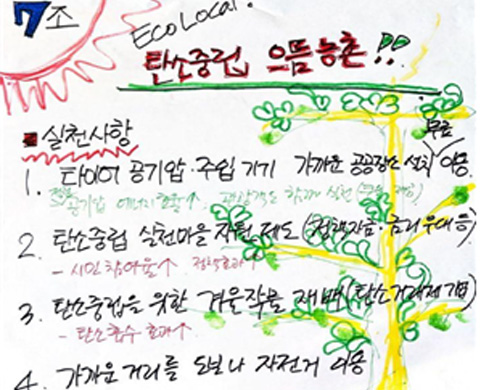 7조
Eco Local!
탄소중립 으뜸농촌!!
실천사항
무료
1. 타이어 공기압·주입기기 가까운 공공장소 설치 이용
적정 공기압 에너지효율↑ 함께 실천
2. 탄소중립 실천마을 지원 제도 (정책자금·금리우대 등)
- 시민참여율↑ 정책효과↑
3. 탄소중립을 위한 겨울작물 재배 (탄소거래제 개방)
- 탄소흡수 효과↑.
4. 가까운 거리를 도보나 자전거 이용